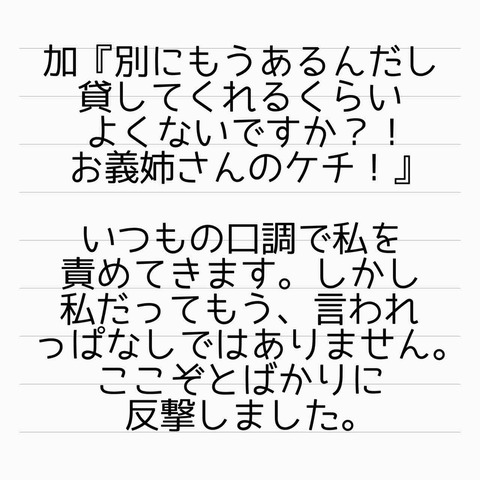 加『別にもうあるんだし
貸してくれるくらい
よくないですか？！
お義姉さんのケチ！』
いつもの口調で私を
責めてきます。しかし
私だってもう、言われ
っぱなしではありません。
ここぞとばかりに
反撃しました。